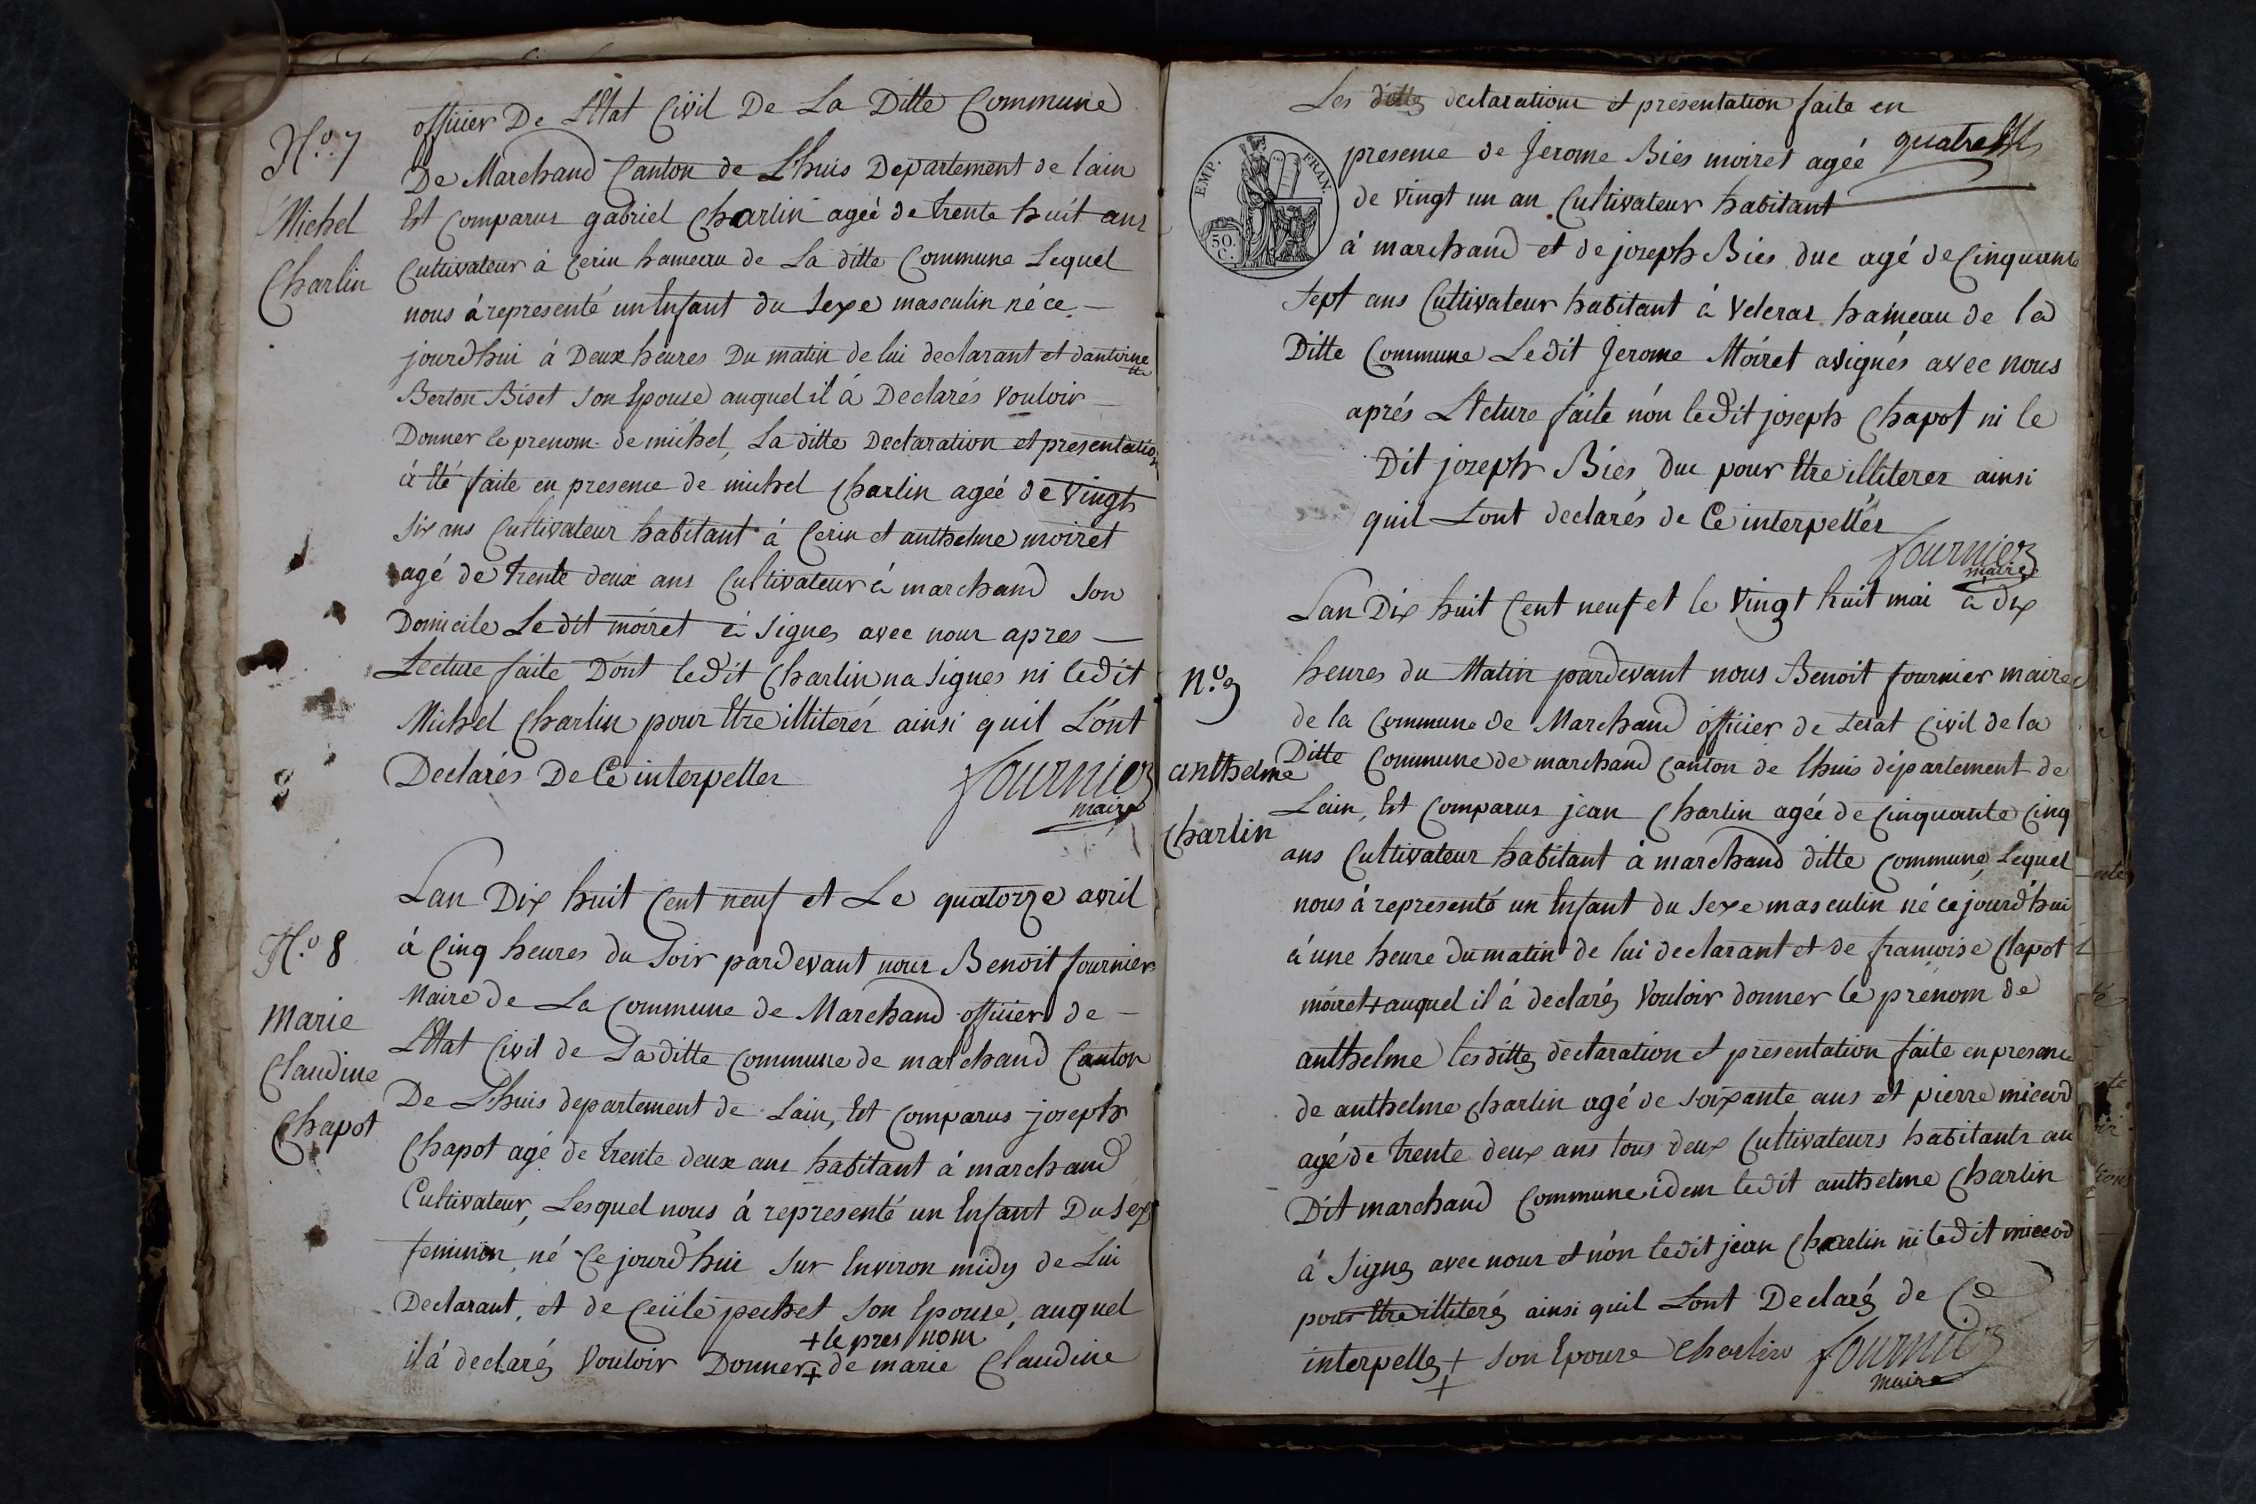 officier De L'Etat Civil De La Ditte Commune
N.o 7
De Marchand Canton de Lhuis Departement de lain
Michel
Charlin
Est Comparus gabriel Charlin ageé de trente huit ans
Cultivateur à Cerin hameau de La ditte Commune Lequel
nous á representé un Enfant du Sexe masculin né ce
jourdhui à Deux heures Du matin de lui declarant et dantoinette
Berlon Biset Son Epouse auquel il á Declarés Vouloir
Donner le prenom de michel, La ditte Declaration et presentation
á Eté faite en presence de michel Charlin ageé de Vingt
Six ans Cultivateur habitant á Cerin et anthelme moiret
agé de trente deux ans Cultivateur á marchand Son
Domicile Le dit moiret á Signes avec nous apres
Lecture faite Dont ledit Charlin na Signes ni ledit
Michel Charlin pour Etre illiterés ainsi quil Lont
Declarés De Ce interpeller
Fournier
maire
Lan Dix huit Cent neuf et Le quatorze avril
N.o 8
Marie
Claudine
Chapot
á Cinq heures du Soir pardevant nous Benoit fournier
Maire de La Commune de Marchand officier de
L'Etat Civil de La ditte Commune de marchand Canton
De Lhuis departement de Lain, Est Comparus joseph
Chapot agé de trente deux ans habitant á marchand
Cultivateur, Lesquel nous á representé un Enfant Du Sexe
feminin, né Ce jourd'hui Sur Environ midy de Lui
Declarant, et de Cecile pechet Son Epouse, auquel
+ le pres nom
il á declarés Vouloir Donner + de marie Claudine
Les dittes declarations et presentation faite en
presence de Jerome Biés moiret ageé
quatre
EMP. FRAN.
50. C.
de Vingt un an Cultivateur habitant
á marchand et de joseph Biés duc agé de Cinquante
Sept ans Cultivateur habitant á Veleras hameau de la
Ditte Commune Le dit Jerome Moiret asignés avec nous
aprés Lecture faite nón ledit joseph Chapot ni le
Dit joseph Biés duc pour Etre illiteres ainsi
quil Lont declarés de Ce interpellés
Fournier
maire
Lan Dix huit Cent neuf et le Vingt huit mai á dix
N.o 9
anthelme
Charlin
heures du Matin pardevant nous Benoit fournier maire
de la Commune de Marchand officier de Letat Civil de la
Ditte Commune de marchand Canton de lhuis département de
Lain, Est Comparus jean Charlin ageé de Cinquante Cinq
ans Cultivateur habitant á marchand ditte Commune, Lequel
nous á representé un Enfant du Sexe masculin né ce jourd'hui
á une heure du matin de lui declarant et de francoise Clapot
moiret + auquel il á declarés Vouloir donner le prénom de
anthelme les dittes declaration et presentation faite en presence
de anthelme Charlin agé de soixante ans et pierre miceod
agé de trente deux ans tous deux Cultivateurs habitants au
Dit marchand Commune idem ledit anthelme Charlin
á Signes avec nous et nón ledit jean Charlin ni ledit miceod
pour Etre illiterés ainsi quil Lont Declarés de Ce
interpelles + Son Epouse Charlin Fournier
+
maire